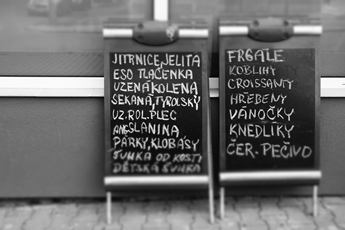 JITRNICE, JELITA
ESO TLAČENKA
UZENÁ KOLENA
SEKANÁ, TYROLSKÝ
UZ. ROL. PLEC
ANG. SLANINA
PÁRKY, KLOBÁSY
ŠUNKA OD KOSTI
DĚTSKÁ ŠUNKA
FRGÁLE
KOBLIHY
CROISSANTY
HŘEBENY
VÁNOČKY
KNEDLÍKY
ČER. PEČIVO